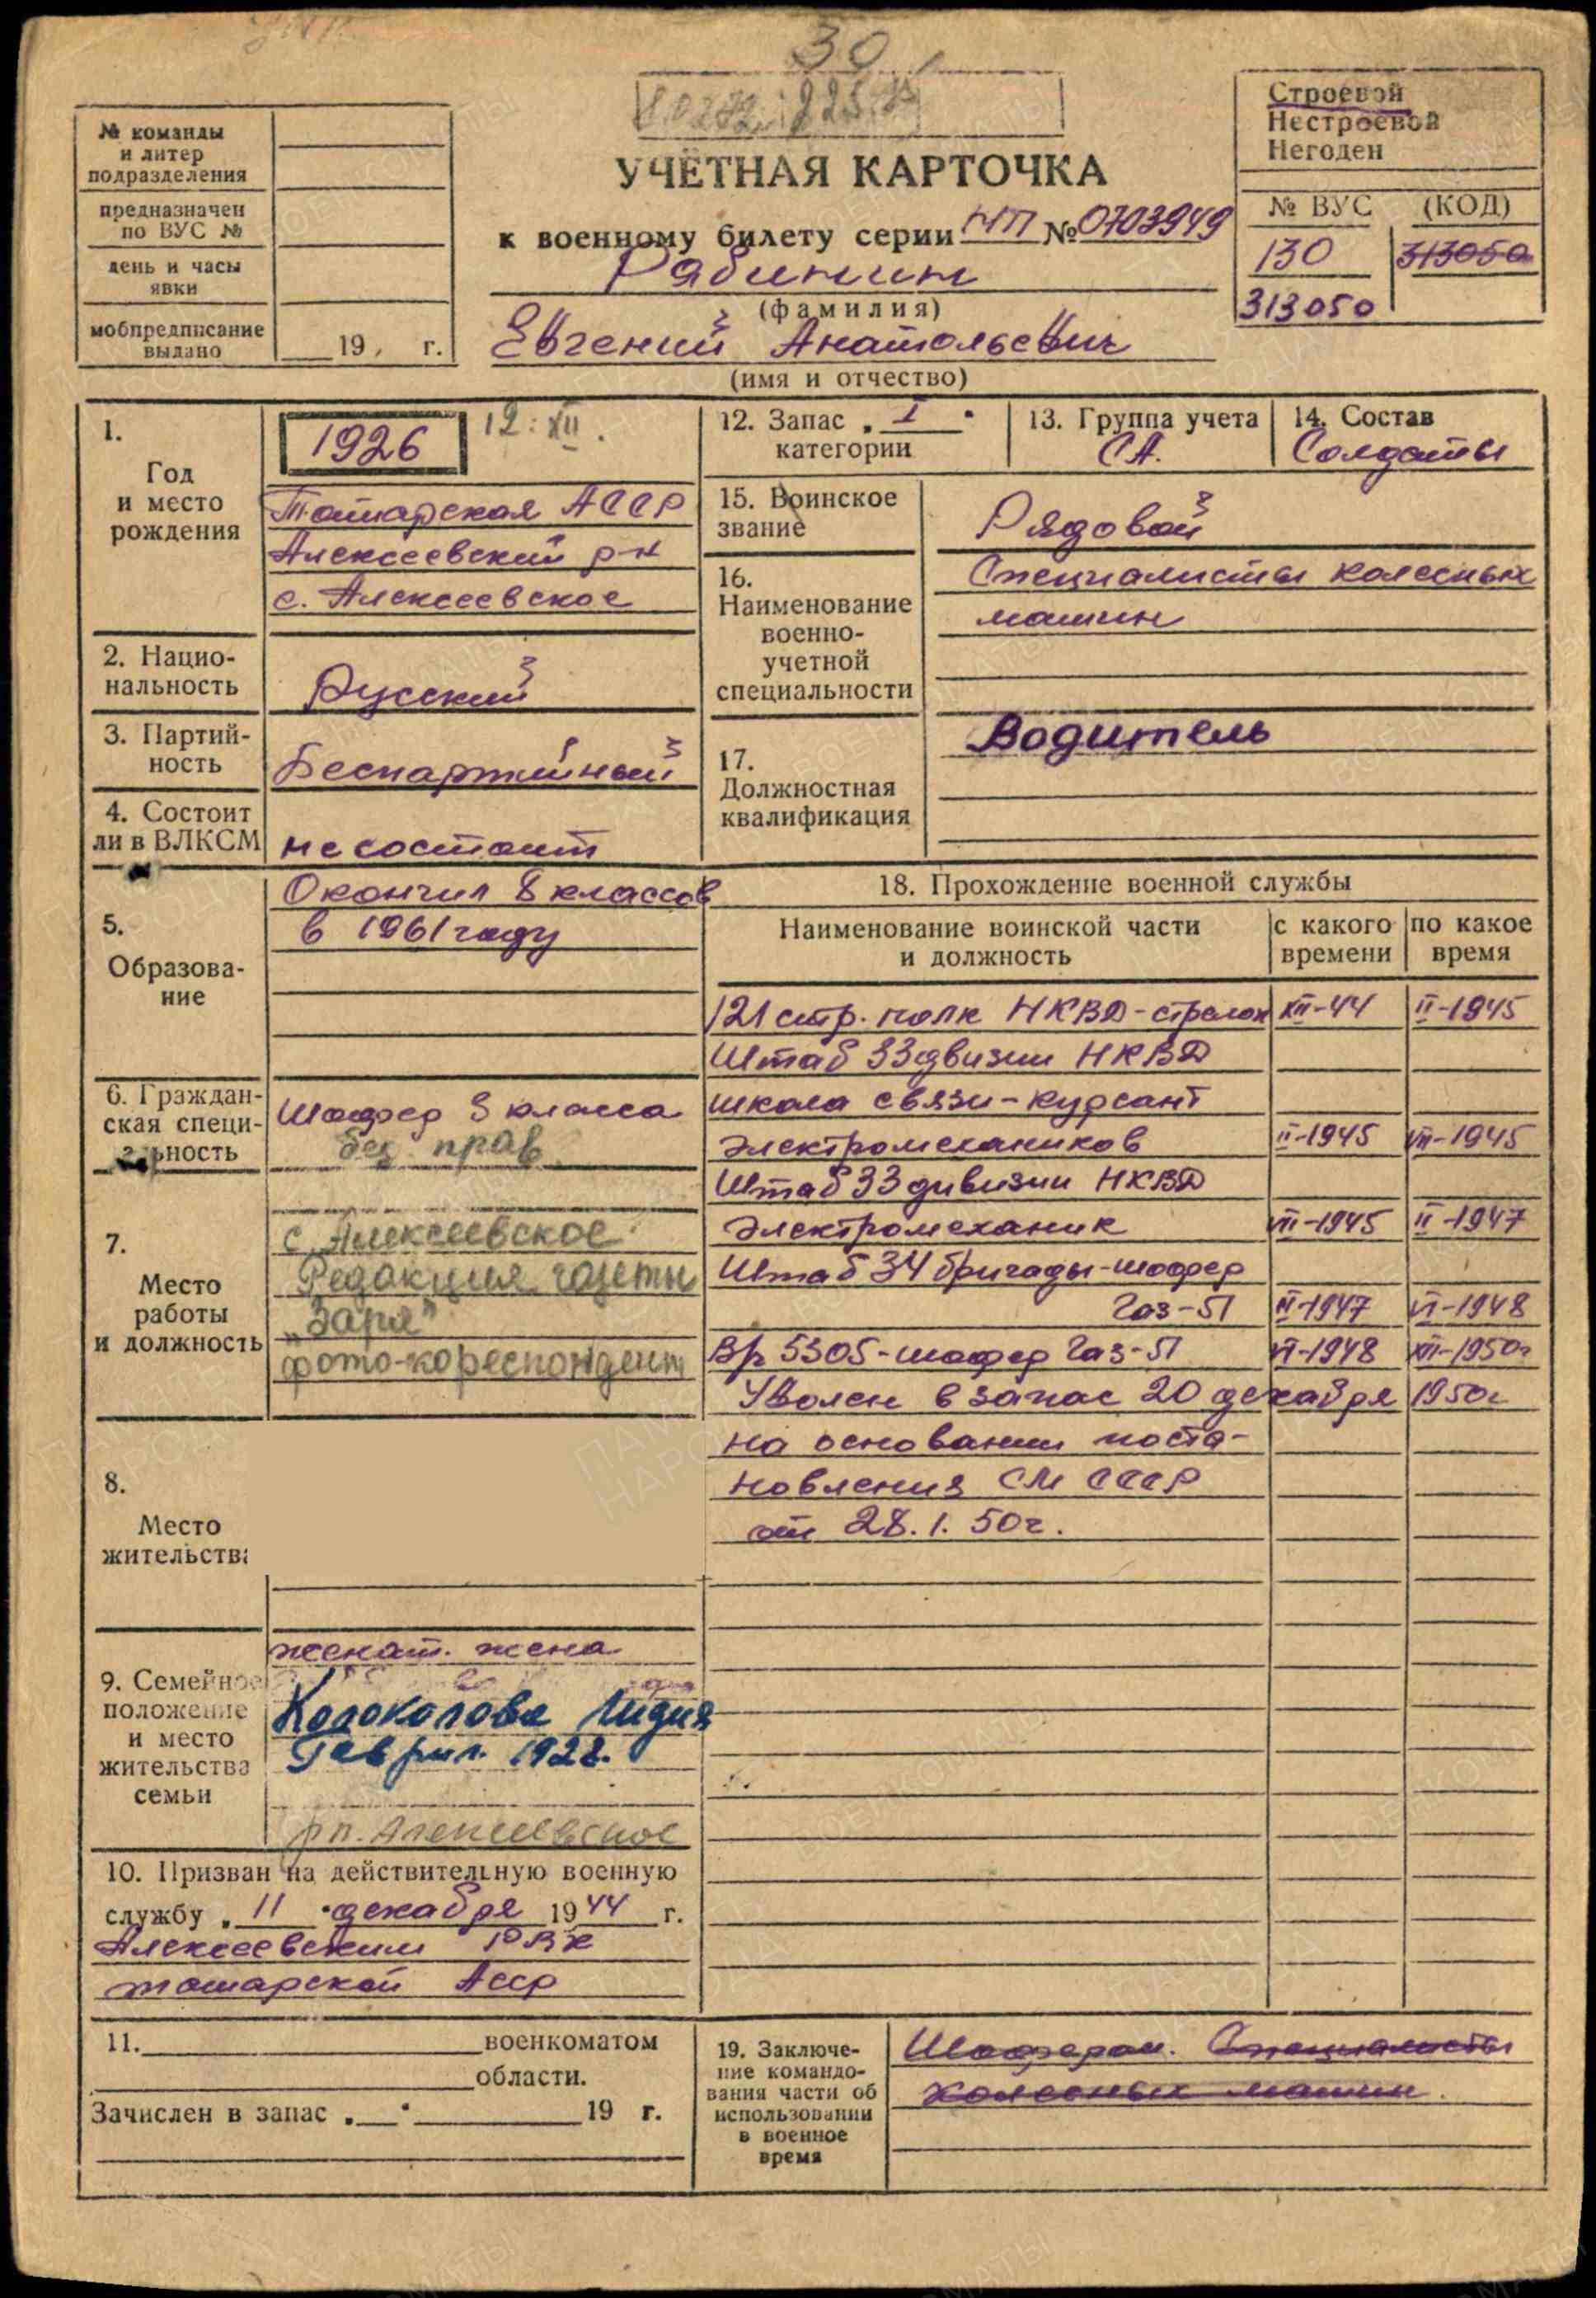 30
УЧЁТНАЯ КАРТОЧКА
к военному билету серии НП № 0703949
Рябинин
(фамилия)
Евгений Анатольевич
(имя и отчество)
№ команды
и литер
подразделения
предназначен
по ВУС №
день и часы
явки
мобпредписание
выдано
19 г.
Строевой
Нестроевой
Негоден
№ ВУС (КОД)
130 313050
313050
1.
Год
и место
рождения
1926 12.XII.
Татарская АССР
Алексеевский р-н
с. Алексеевское
2. Нацио-
нальность
Русский
3. Партий-
ность
Беспартийный
4. Состоит
ли в ВЛКСМ
не состоит
5.
Образова-
ние
Окончил 8 классов
в 1961 году
6. Граждан-
ская специ-
льность
Шофер 3 класса
без прав
7.
Место
работы
и должность
с. Алексеевское
Редакция газеты
„Заря"
фото-кореспондент
8.
Место
жительства
9. Семейное
положение
и место
жительства
семьи
женат. жена
Колоколова Лидия
Гаврил. 1928.
рп. Алексеевское
10. Призван на действительную военную
службу „11" декабря 1944 г.
Алексеевским РВК
татарской Асср
11. военкоматом
области.
Зачислен в запас „ " 19 г.
12. Запас „I"
категории
13. Группа учета
СА.
14. Состав
Солдаты
15. Воинское
звание
Рядовой
16.
Наименование
военно-
учетной
специальности
Специалисты колесных
машин
17.
Должностная
квалификация
Водитель
18. Прохождение военной службы
Наименование воинской части
и должность
с какого
времени
по какое
время
121 стр. полк НКВД-стрелок XII-44 II-1945
Штаб 33 двизии НКВД
школа связи-курсант
электромехаников II-1945 VII-1945
Штаб 33 дивизии НКВД
электромеханик VII-1945 II-1947
Штаб 34 бригады-шофер
Газ-51 II-1947 VI-1948
В/ч 5305-шофер Газ-51 VI-1948 XII-1950г
Уволен в запас 20 декабря 1950г
на основании поста-
новления СМ СССР
от 28.1.50г.
19. Заключе-
ние командо-
вания части об
использовании
в военное
время
Шофером. Специалисты
колесных машин.